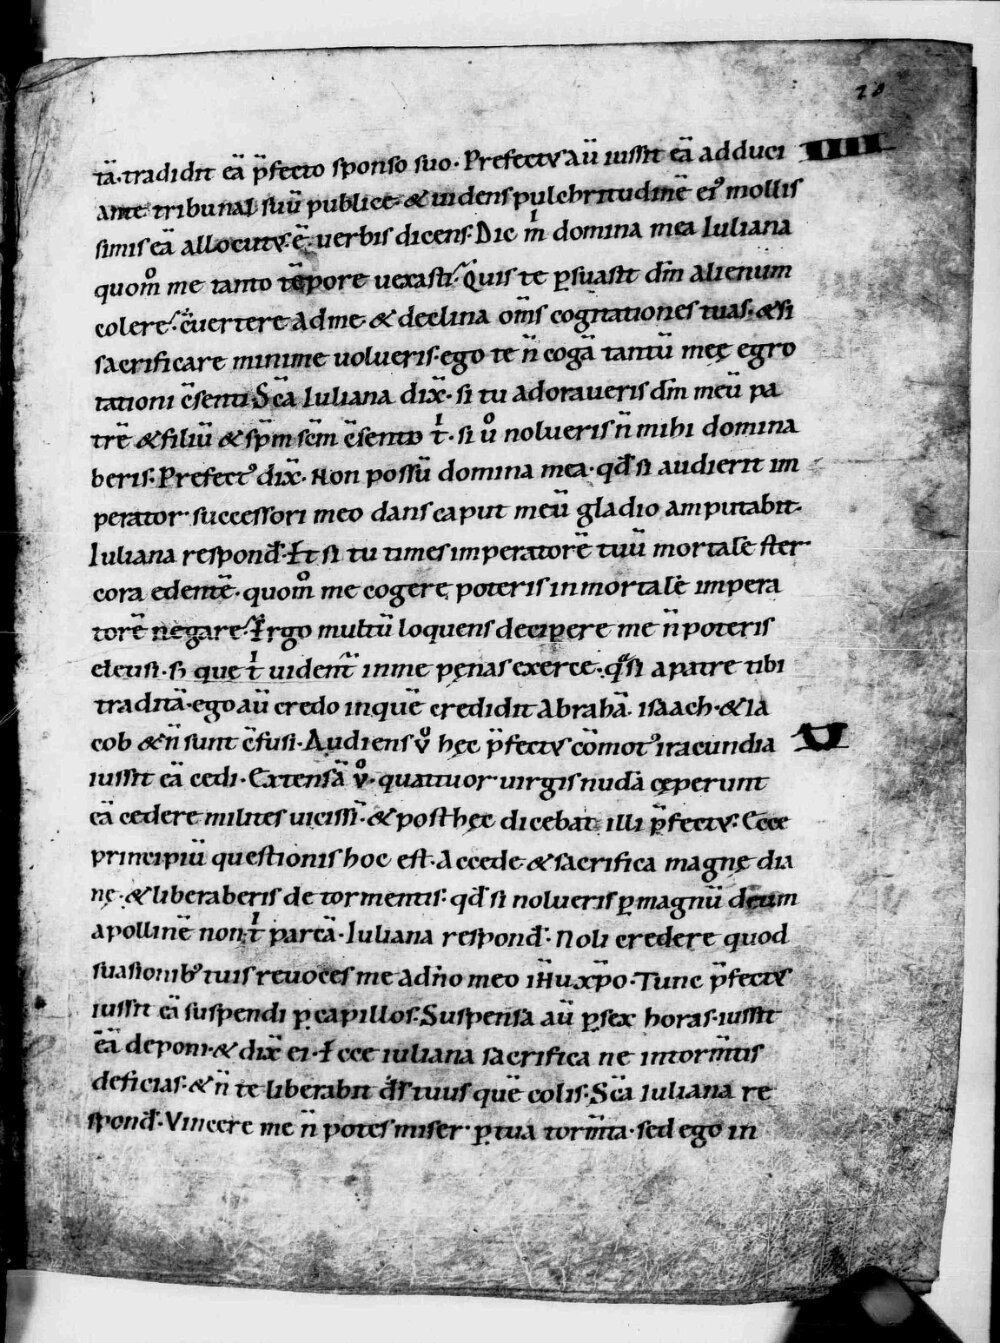 20
tā. tradidit eā p̄fecto sponso suo. Prefectus aū iussit eā adduci IIII
ante tribunal suū publice. & uidens pulchritudinē ei᾽ mollis
simis eā allocutus. ē. uerbis dicens. Dic m̍ domina mea Iuliana
quom̊ me tanto tēpore uexasti. Quis te p̱suasit dm̄ alienum
colere. c̄uertere ad me & declina om̄s cognationes tuas. & si
sacrificare minime uolueris. ego te n̄ cogā tantū meę egro
tationi c̄senti. Sc̄a Iuliana dix̄. si tu adoraueris dm̄ meū pa
trē & filiū & sp̄m sc̄m c̄sento t̍. si ů nolueris n̄ mihi domina
beris. Prefect᾽ dix̄. Non possū domina mea. qd̄ si audierit im
perator. successori meo dans caput meū gladio amputabit.
Iuliana respond̄. Et si tu times imperatorē tuū mortalē ster
cora edentē. quom̊ me cogere poteris inmortalē impera
torē negare. Ergo multū loquens decipere me n̄ poteris
eleusi. sꝫ que t̍ uident᷑ in me pęnas exerce. qͣsi a patre tibi
traditā. ego aū credo in quē credidit Abrahā. isaach. & Ia
cob & n̄ sunt c̄fusi. Audiens ů hęc p̄fectus cōmot᾽ iracundia V
iussit eā cedi. Extensā ů. quattuor uirgis nudā cęperunt
eā cedere milites uicissī. & post hęc dicebat illi p̄fectus. Ecce
principiū questionis hoc est. Accede & sacrifica magnę dia
nę. & liberaberis de tormentis. qd̄ si nolueris p̱ magnū deum
apollinē non t̍ parcā. Iuliana respond̄. Noli credere quod
suasionib᾽ tuis reuoces me ad dn̄o meo ih̄u xp̄o. Tunc p̄fectus
iussit eā suspendi p̱ capillos. Suspensa aū p̱ sex horas. iussit
eā deponi. & dix̄ ei. Ecce iuliana sacrifica ne in torm̄tis
deficias. & n̄ te liberabit ds̄ tuus quē colis. Sc̄a Iuliana re
spond̄. Vincere me n̄ potes miser. p̱ tua torm̄ta. sed ego in